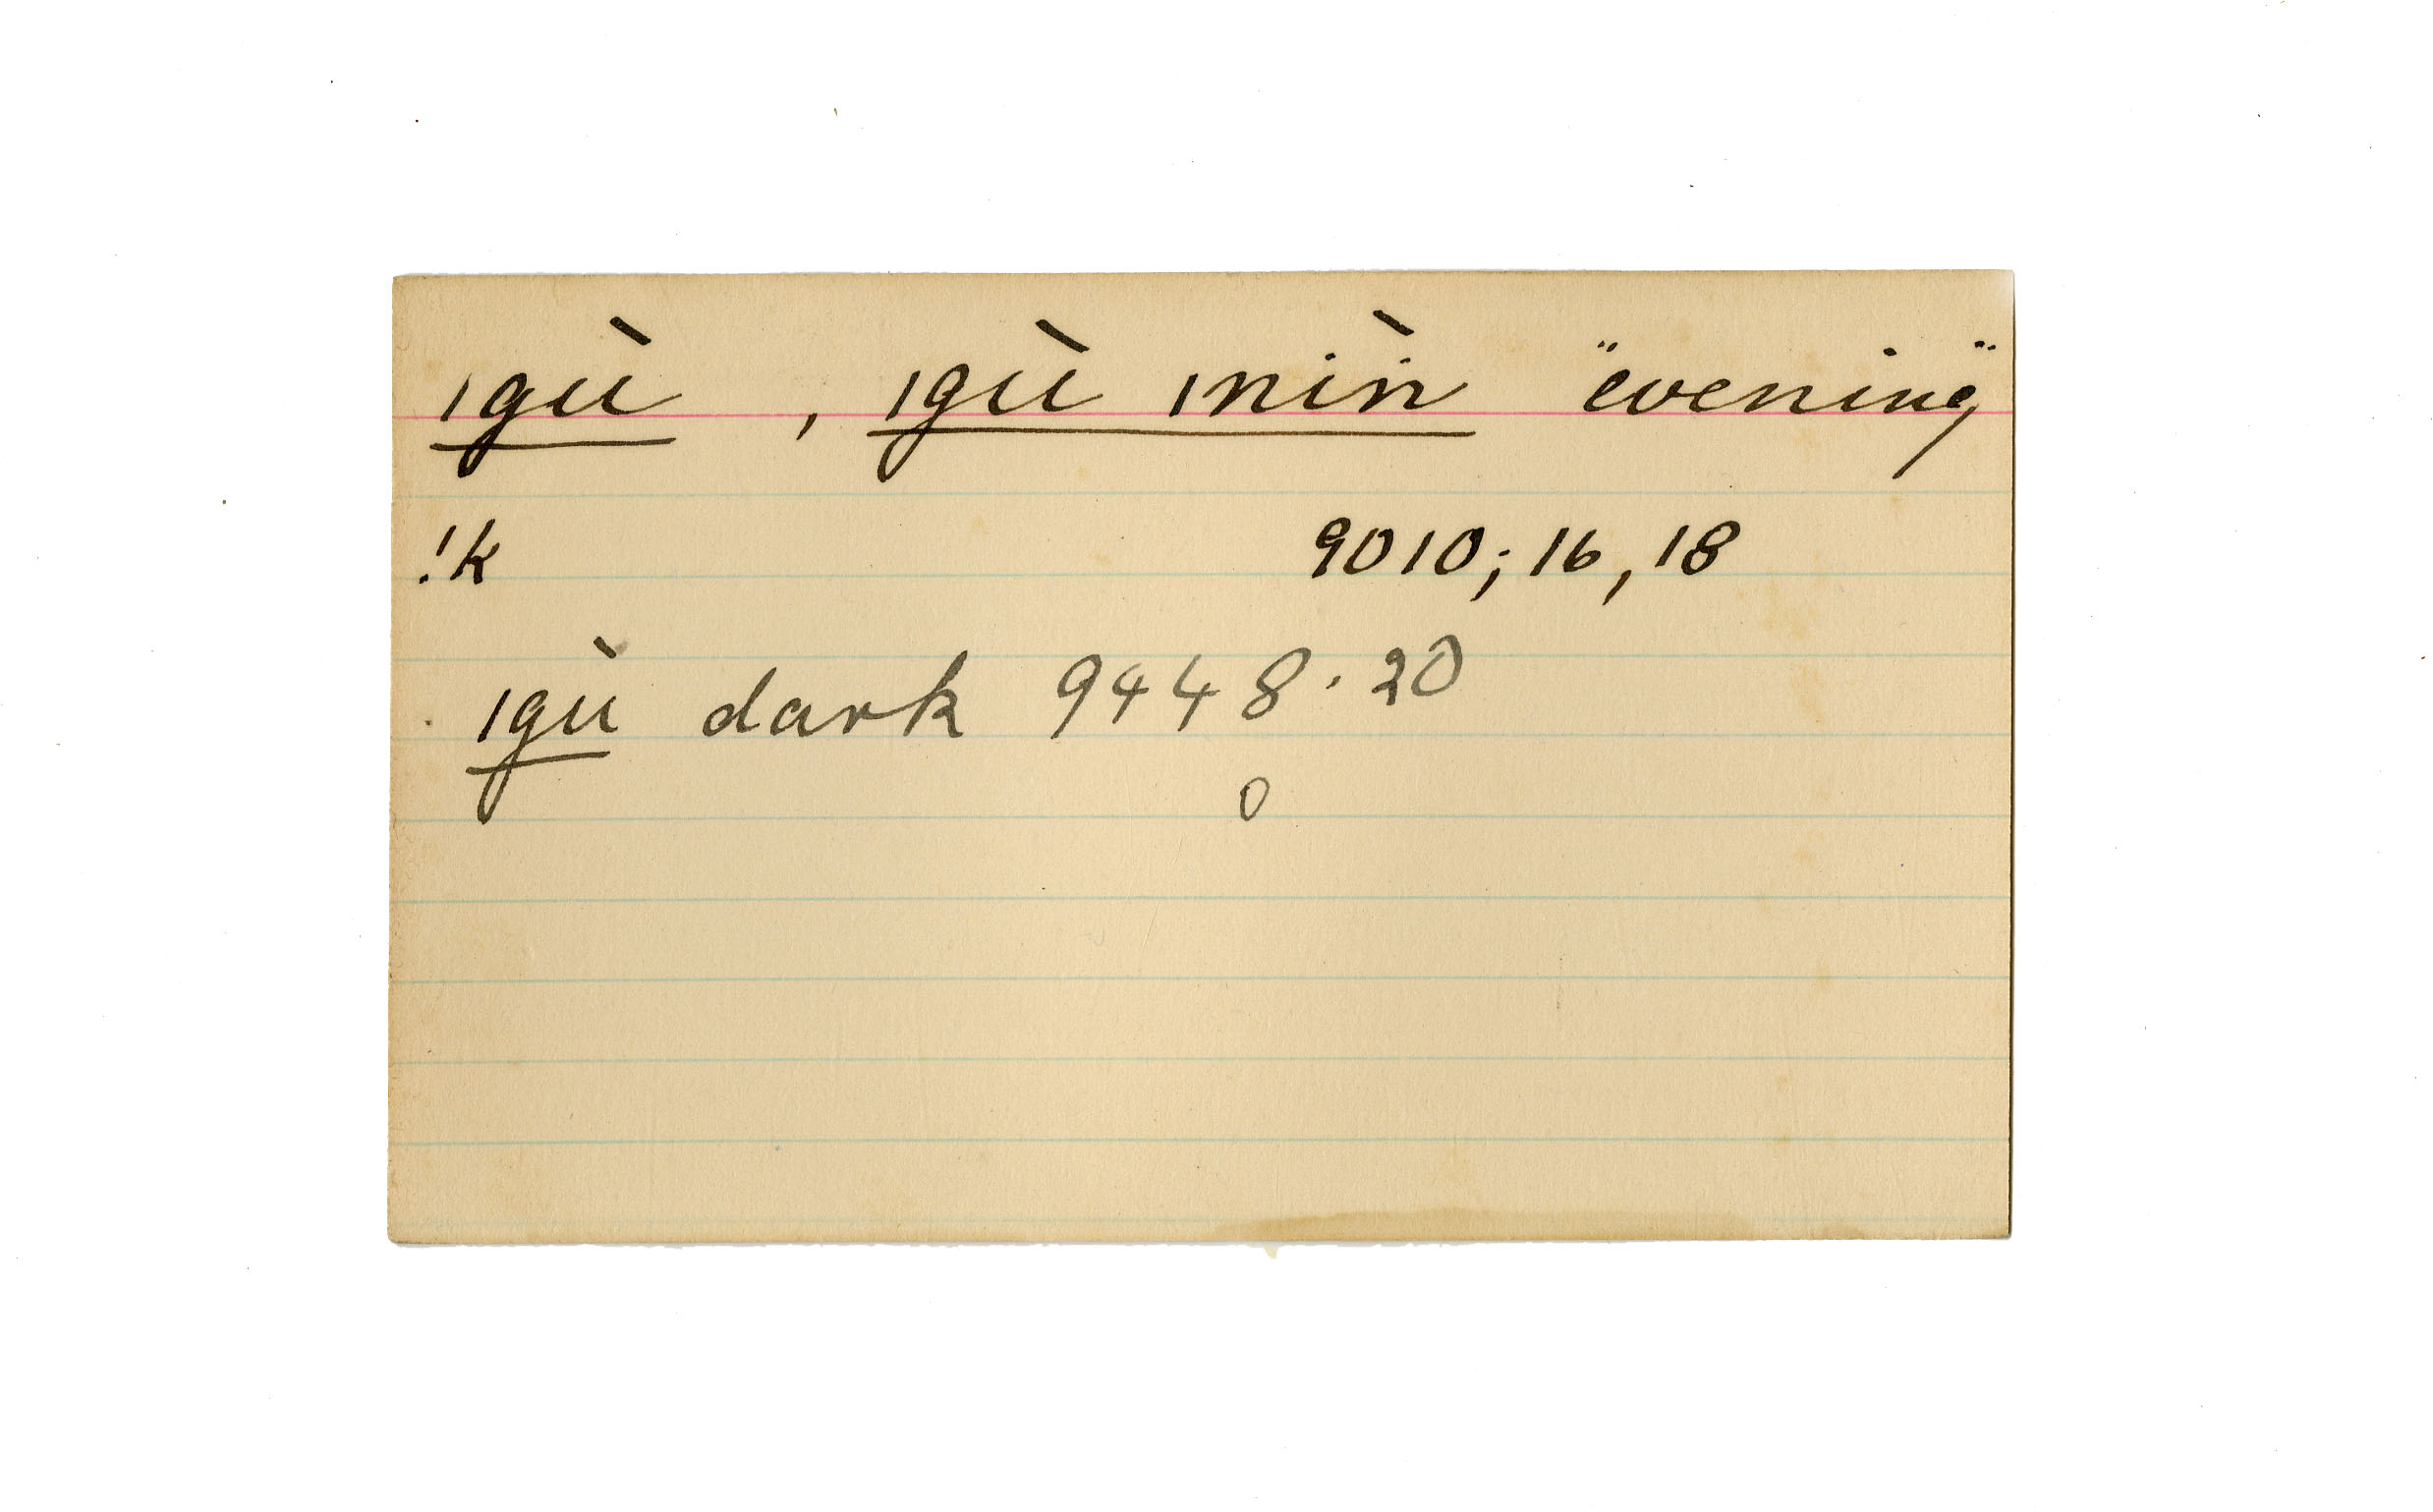 ǀgù , ǀgù ǀnìn "evening"
!k 9010; 16, 18
ǀgù dark 9448. 20
0